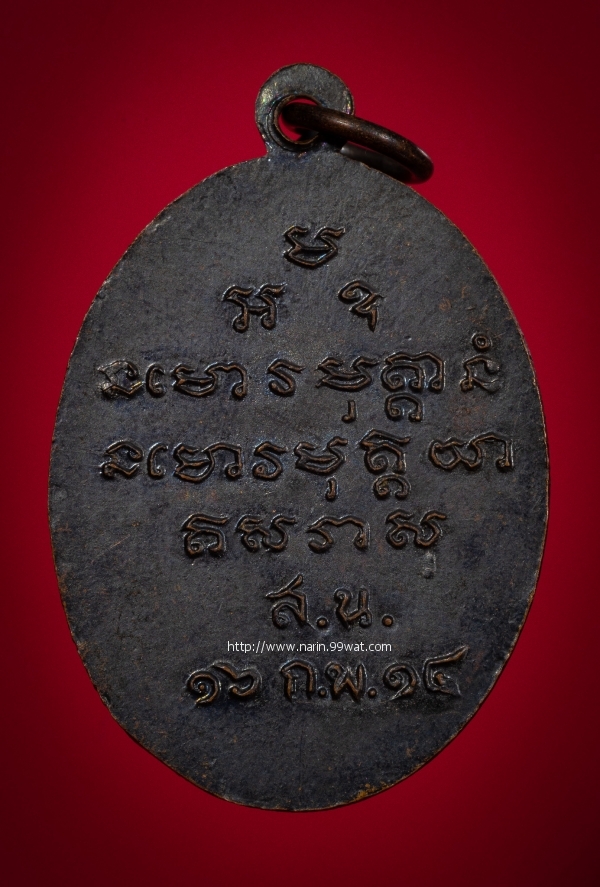 ម
អ ឧ
នមោ វិមុត្តានំ
នមោ វិមុត្តិយា
ส.น.
http://www.narin.99wat.com
๑๖ ก.พ.๑๔